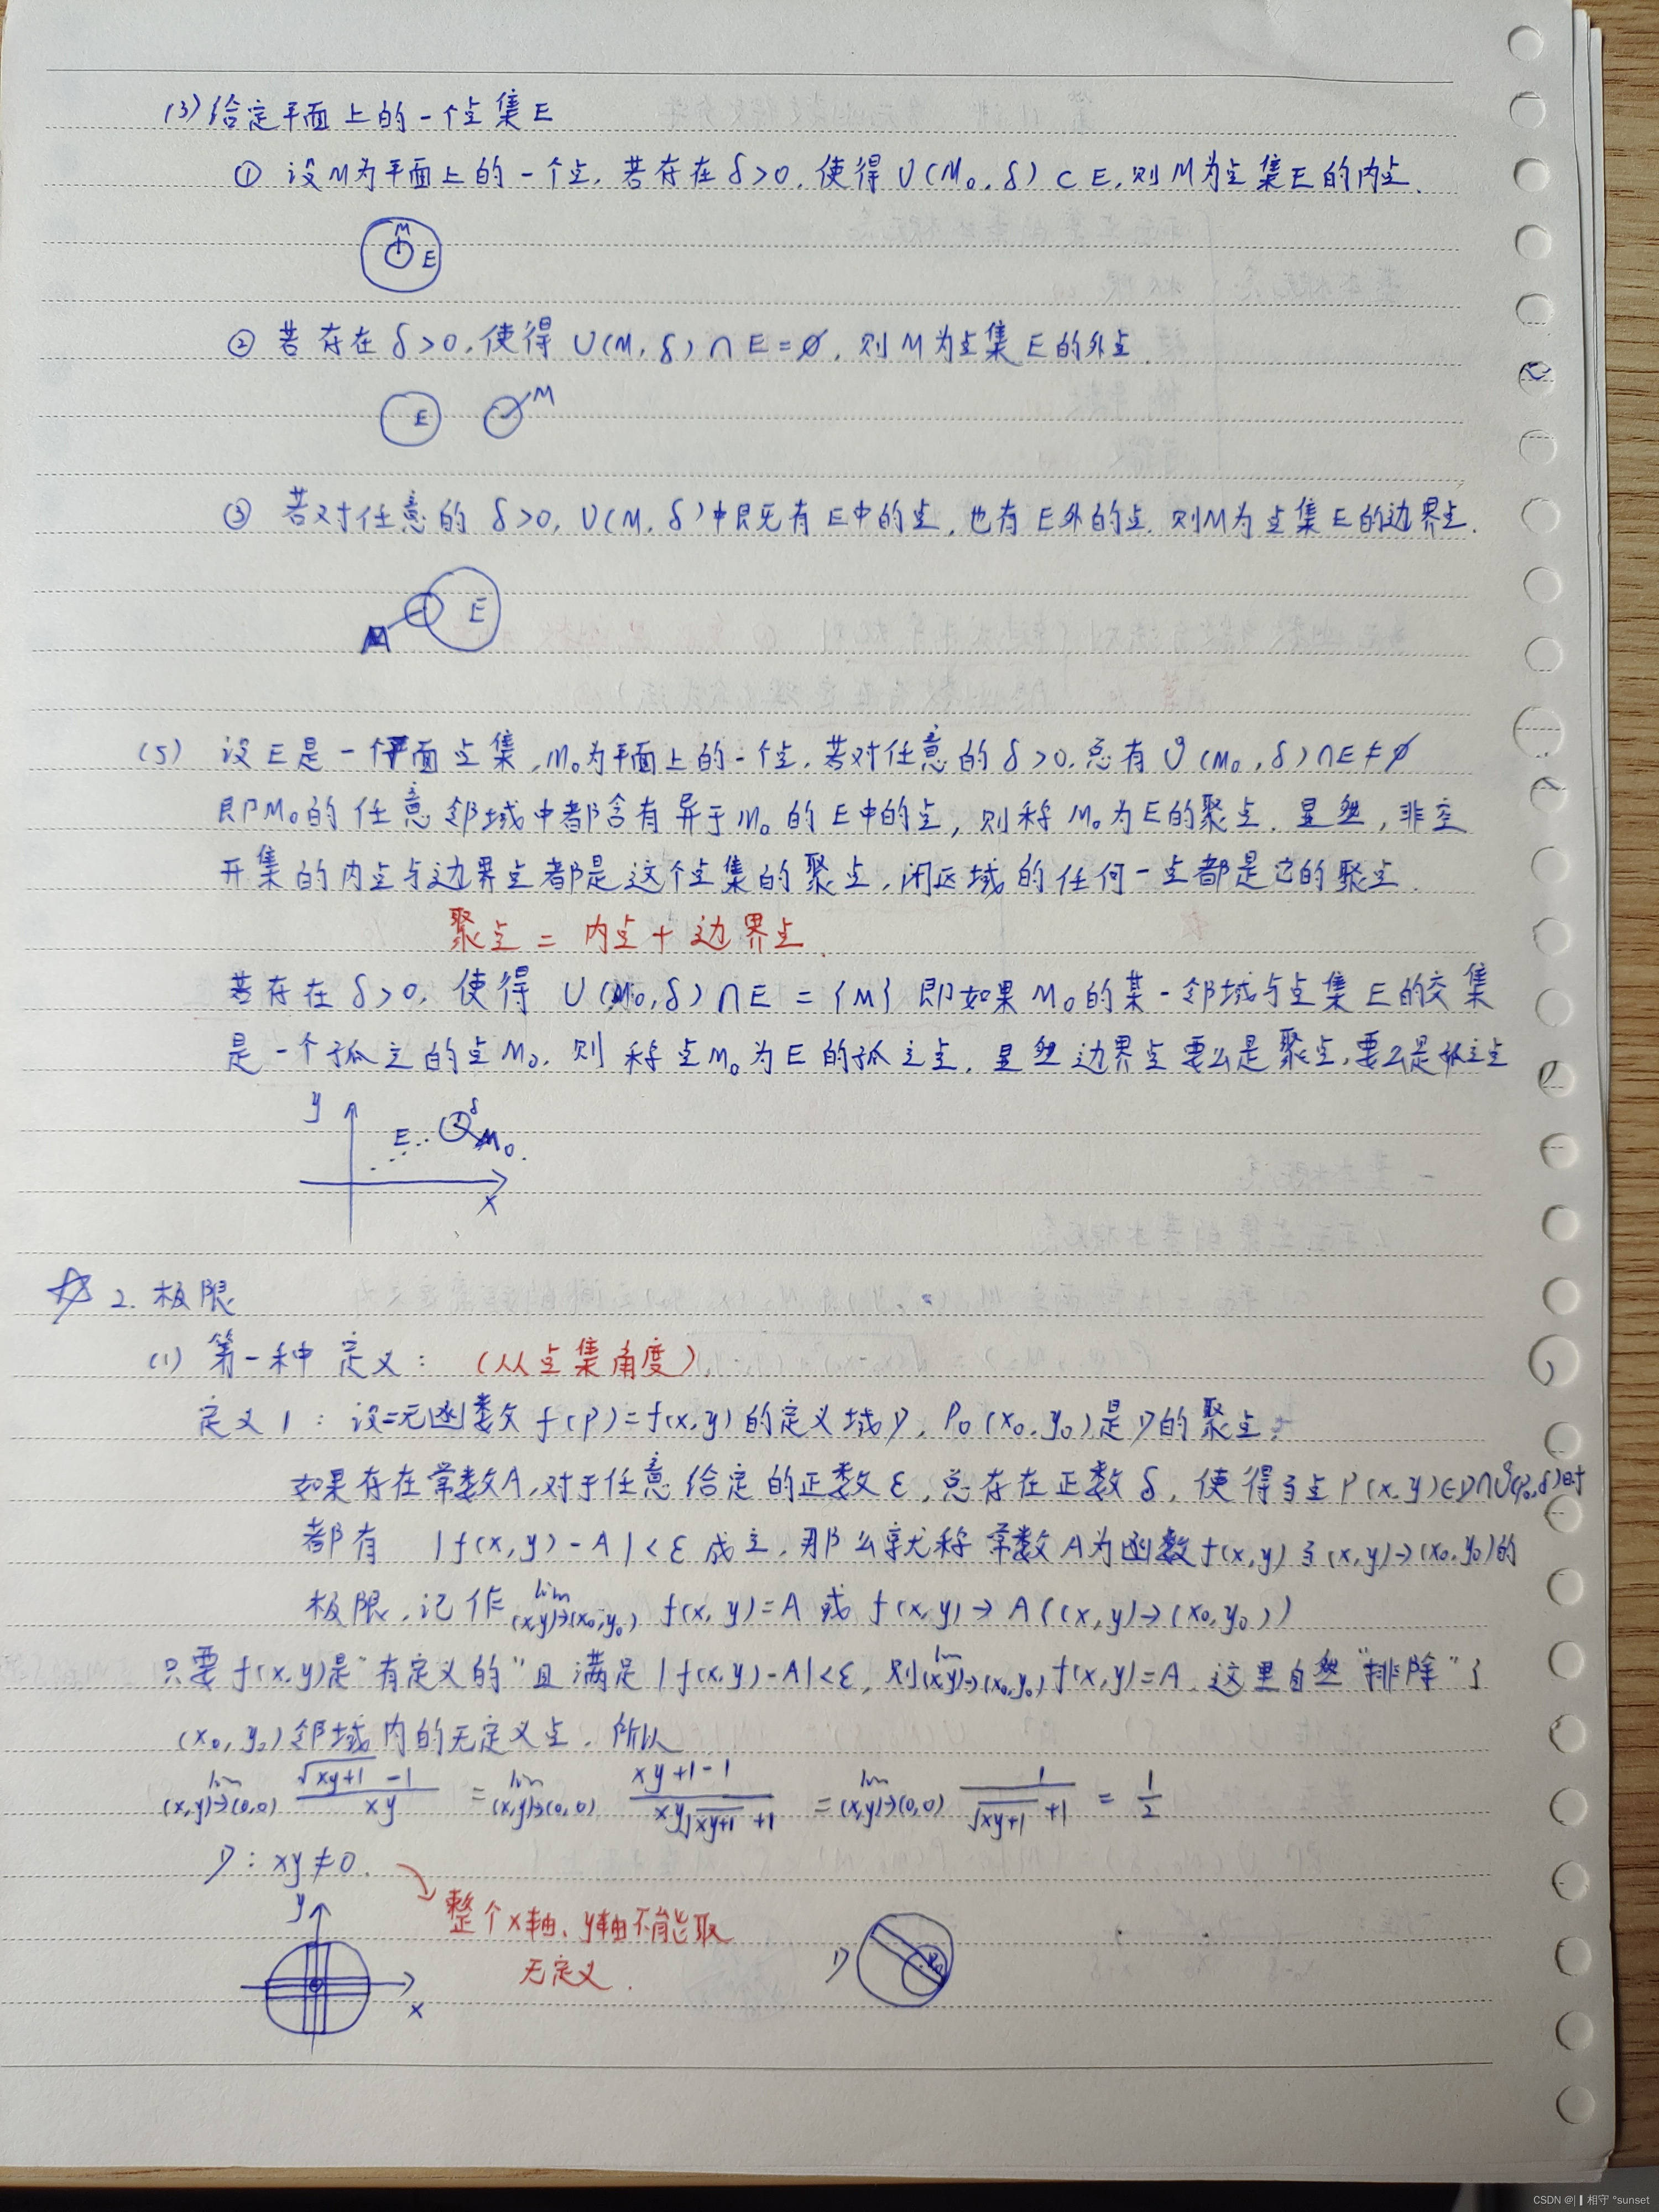 (3) 给定平面上的一个点集E
① 设M为平面上的一个点,若存在δ>0,使得U(M₀,δ)⊂E,则M为点集E的内点.
M
E
② 若存在δ>0,使得U(M,δ)∩E=∅,则M为点集E的外点.
E M
③ 若对任意的δ>0,U(M,δ)中既有E中的点,也有E外的点.则M为点集E的边界点.
E
M
(5) 设E是一个平面点集,M₀为平面上的一个点,若对任意的δ>0.总有Ů(M₀,δ)∩E≠∅
即M₀的任意邻域中都含有异于M₀的E中的点,则称M₀为E的聚点.显然,非空
开集的内点与边界点都是这个点集的聚点,闭区域的任何一点都是它的聚点.
聚点=内点+边界点.
若存在δ>0,使得U(M₀,δ)∩E={M}即如果M₀的某一邻域与点集E的交集
是一个孤立的点M₀.则称点M₀为E的孤立点.显然边界点要么是聚点,要么是孤立点
y
δ
E M₀
x
☆ 2. 极限
(1) 第一种定义: (从点集角度)
定义1:设二元函数f(P)=f(x,y)的定义域D,P₀(x₀,y₀)是D的聚点,
如果存在常数A,对于任意给定的正数ε,总存在正数δ,使得当点P(x,y)∈D∩Ů(P₀,δ)时
都有 |f(x,y)-A|<ε成立.那么就称常数A为函数f(x,y)当(x,y)→(x₀,y₀)的
极限,记作 lim (x,y)→(x₀,y₀) f(x,y)=A 或 f(x,y)→A((x,y)→(x₀,y₀))
只要f(x,y)是"有定义的"且满足|f(x,y)-A|<ε,则 lim (x,y)→(x₀,y₀) f(x,y)=A.这里自然"排除"了
(x₀,y₀)邻域内的无定义点.所以
lim (x,y)→(0,0) (√(xy+1) -1)/(xy) = lim (x,y)→(0,0) (xy+1-1)/(xy√(xy+1) +1) = lim (x,y)→(0,0) 1/(√(xy+1) +1) = 1/2
D:xy≠0.
y
整个x轴、y轴不能取
无定义.
D P₀
x
CSDN @|▎相守 °sunset